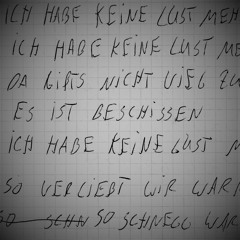 ICH HABE KEINE LUST MEH
ICH HABE KEINE LUST ME
DA GIBTS NICHT VIEL ZU
ES IST BESCHISSEN
ICH HABE KEINE LUST M
SO VERLIEBT WIR WAR
SO SCHN SO SCHNELL WAR